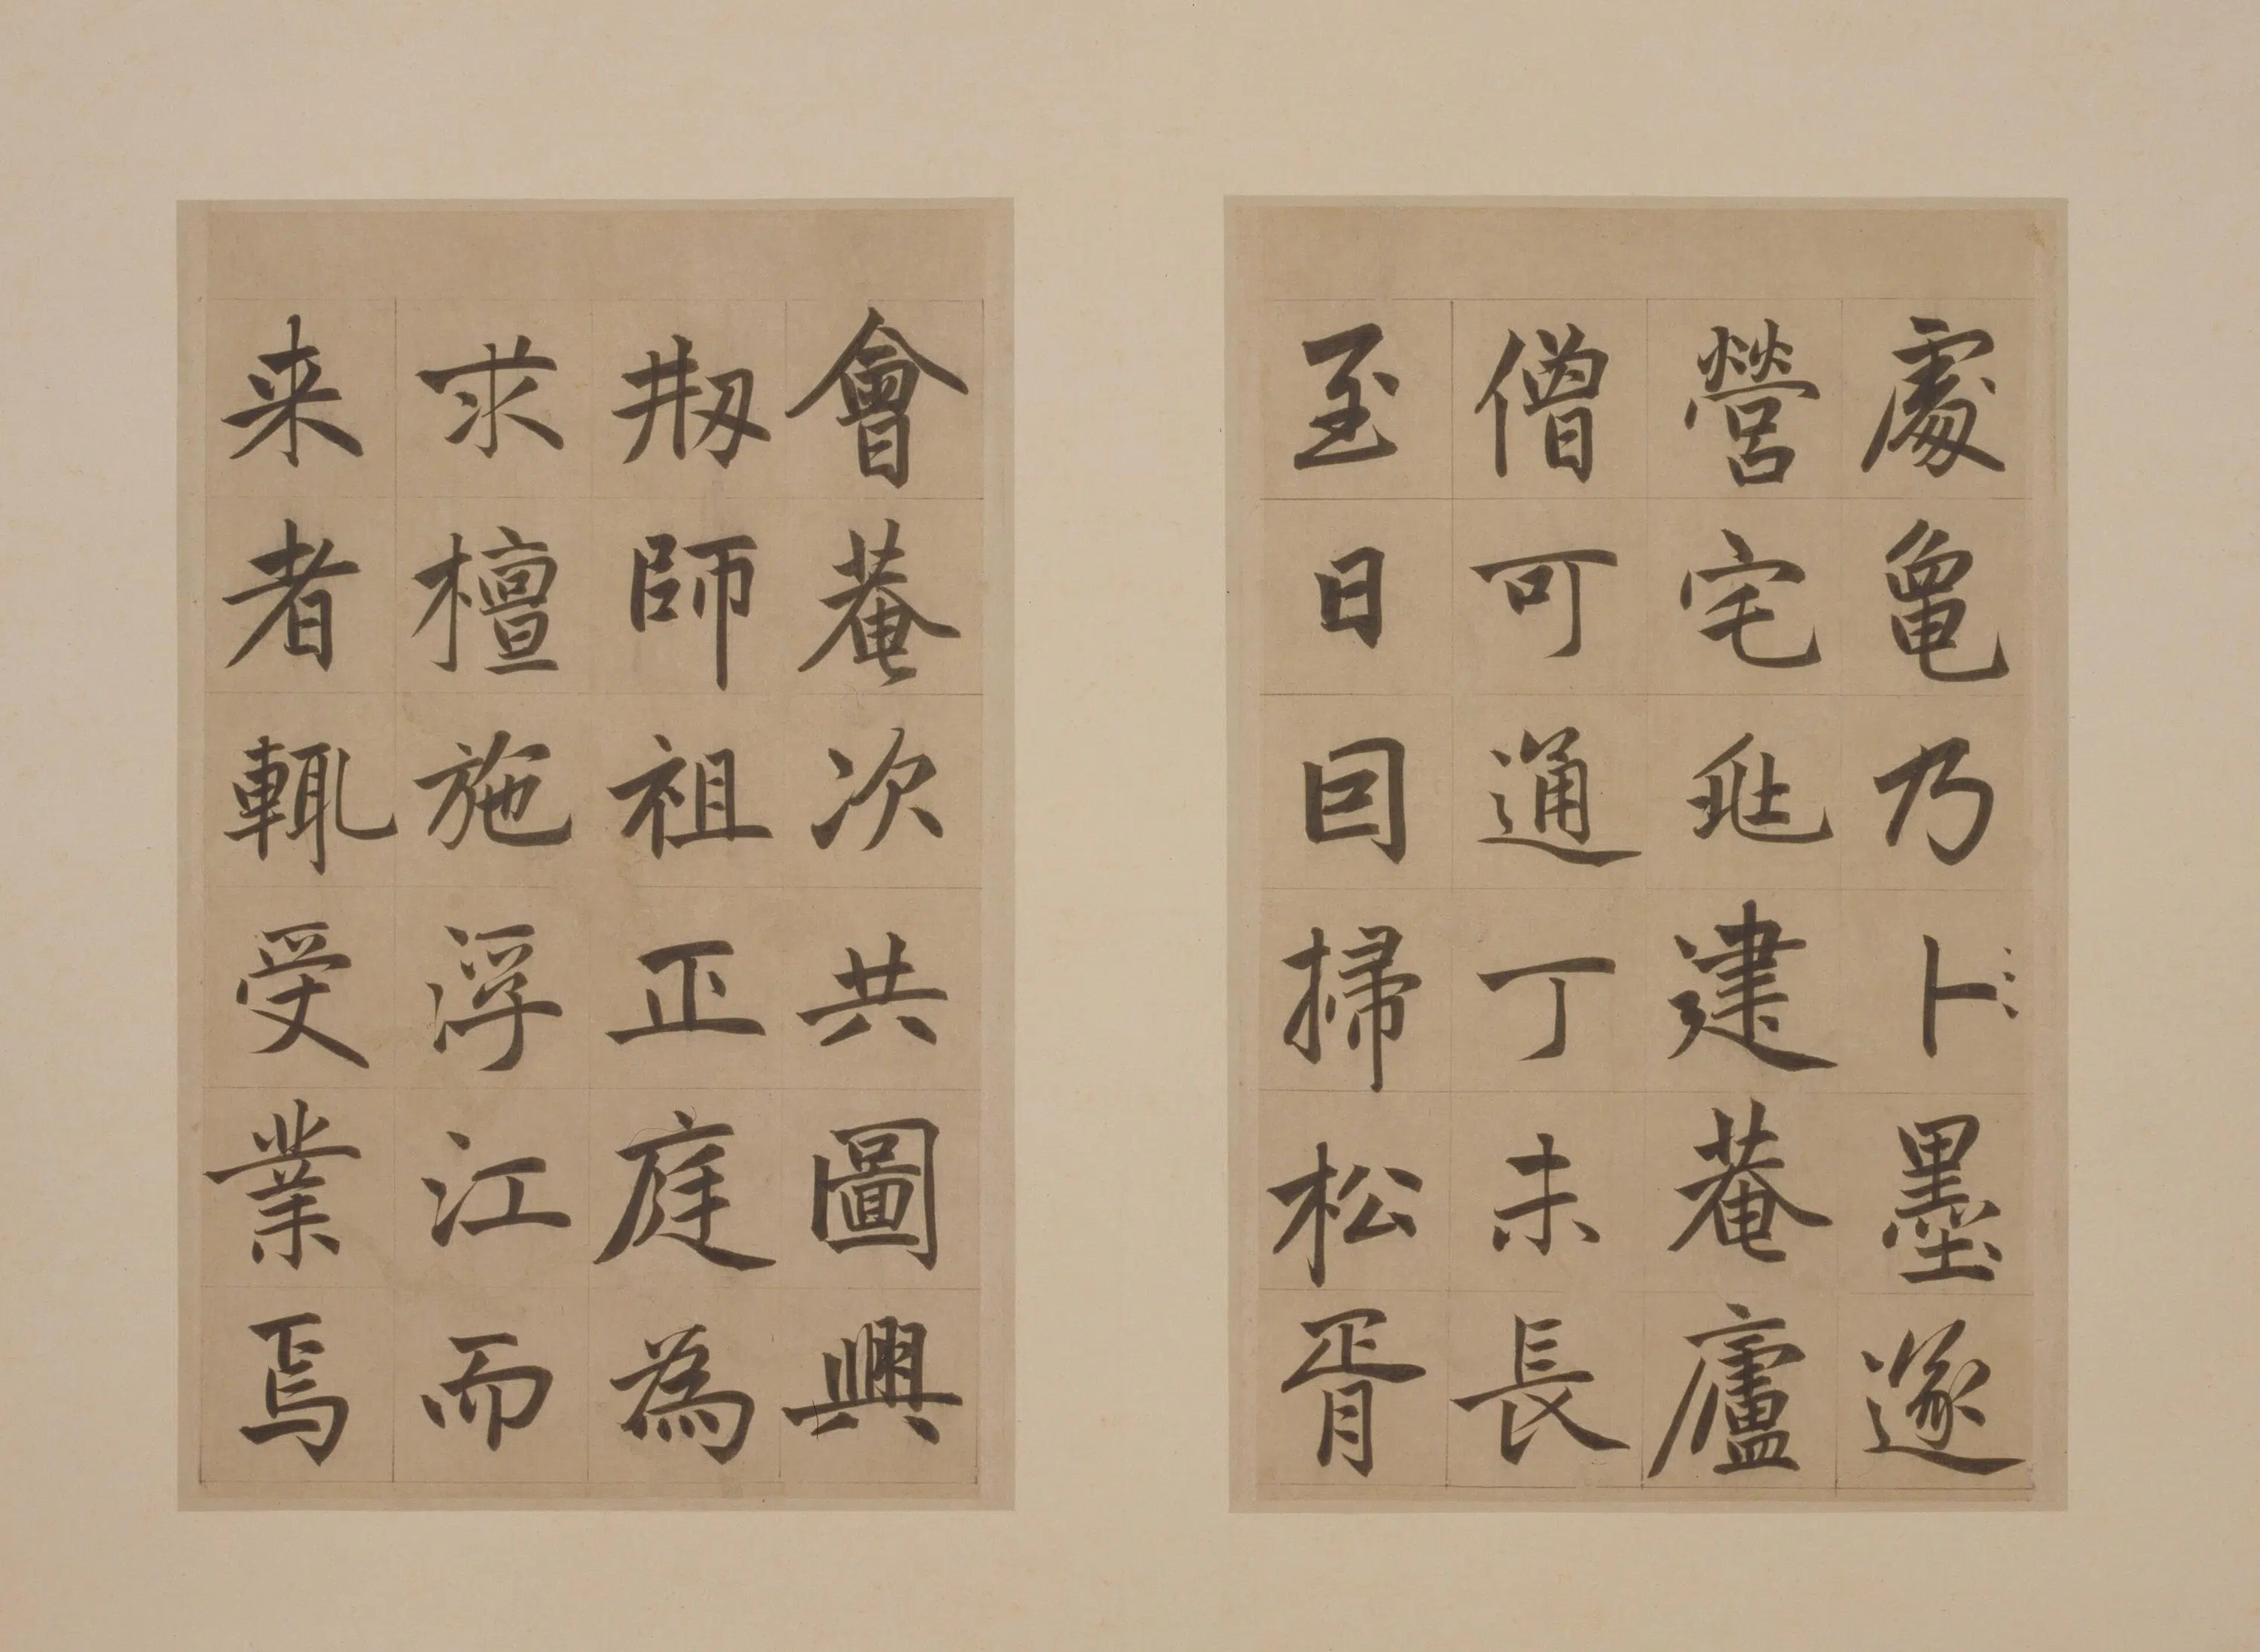 處龜乃卜墨遂
營宅兆建菴廬
僧可通丁未長
至日因掃松胥
會菴次共圖興
剏師祖正庭為
求檀施浮江而
来者輒受業焉